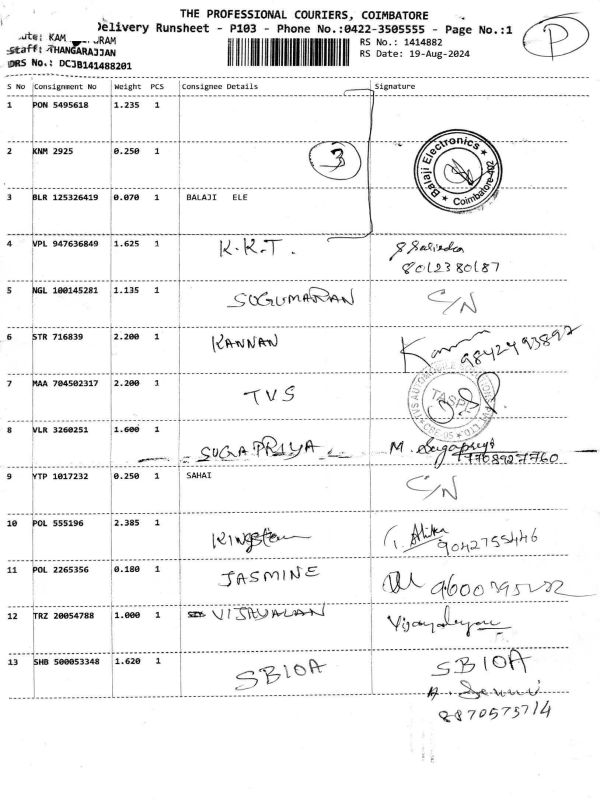 THE PROFESSIONAL COURIERS, COIMBATORE
Delivery Runsheet - P103 - Phone No.:0422-3505555 - Page No.:1
P
KAM URAM
Staff: THANGARAJJAN
DRS No.: DCJB141488201
RS No.: 1414882
RS Date: 19-Aug-2024
S No Consignment No Weight PCS Consignee Details Signature
1 PON 5495618 1.235 1
2 KNM 2925 0.250 1 3
Balaji Electronics ★ Coimbatore ★
3 BLR 125326419 0.070 1 BALAJI ELE
4 VPL 947636849 1.625 1 K.K.T.
8012380187
5 NGL 100145281 1.135 1 SUGUMARAN C/N
6 STR 716839 2.200 1 KANNAN
7 MAA 704502317 2.200 1 TVS
TVS AUTOMOBILE
8 VLR 3260251 1.600 1 SUGA PRIYA M. Sugapriya
7708927760
9 YTP 1017232 0.250 1 SAHAI C/N
10 POL 555196 2.385 1 Kingston
9042755446
11 POL 2265356 0.180 1 JASMINE
12 TRZ 20054788 1.000 1 VIJAYALAN
13 SHB 500053348 1.620 1 SBIOA SBIOA
8870575714